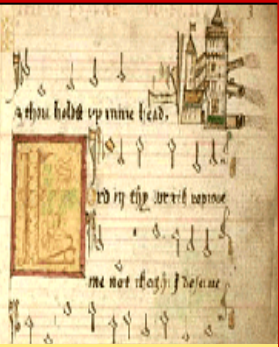 thou holdst vp mine head.
rd in thy wrath reproue
me not though I deserue